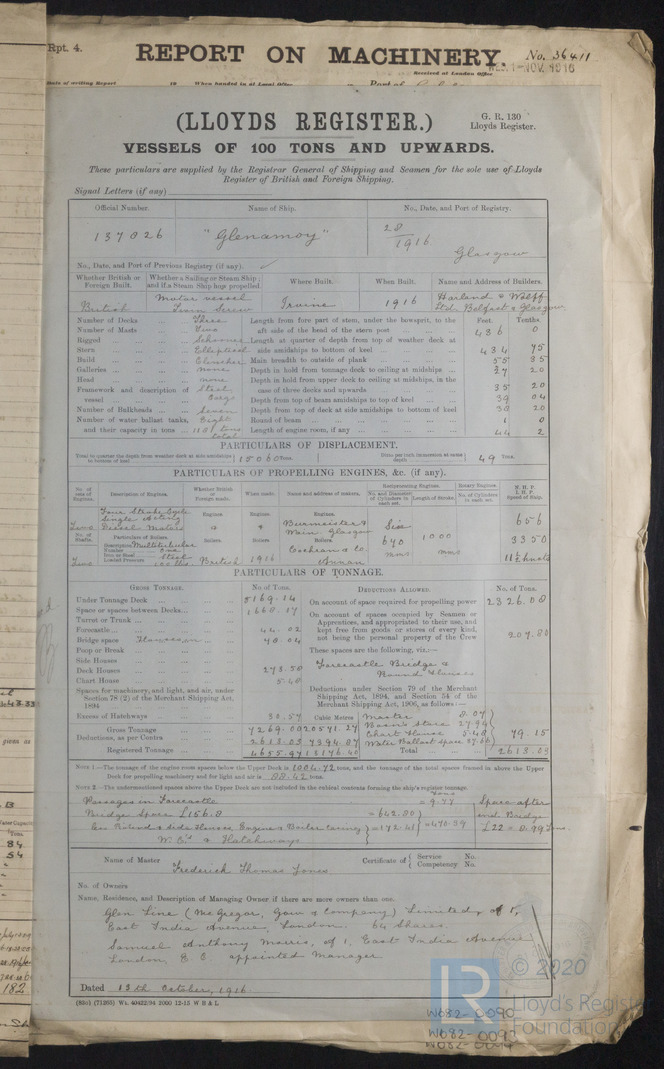 Rpt. 4.
REPORT ON MACHINERY.
No. 36411
1-NOV. 1916
Received at London Office
Date of writing Report 19 When handed in at Local Office Port of
(LLOYDS REGISTER.)
G. R. 130
Lloyds Register.
VESSELS OF 100 TONS AND UPWARDS.
These particulars are supplied by the Registrar General of Shipping and Seamen for the sole use of Lloyds
Register of British and Foreign Shipping.
Signal Letters (if any)
Official Number. Name of Ship. No., Date, and Port of Registry.
137026 "Glenamoy" 28/1916 Glasgow
No., Date, and Port of Previous Registry (if any).
Whether British or Foreign Built. Whether a Sailing or Steam Ship; and if a Steam Ship how propelled. Where Built. When Built. Name and Address of Builders.
British Motor vessel Twin Screw Irvine 1916 Harland & Wolff Ltd. Belfast & Glasgow
Number of Decks Three Length from fore part of stem, under the bowsprit, to the Feet. Tenths.
Number of Masts aft side of the head of the stern post 436 0
Rigged Schooner Length at quarter of depth from top of weather deck at
Stern Elliptical side amidships to bottom of keel 434 75
Build Clencher Main breadth to outside of plank 55 85
Galleries none Depth in hold from tonnage deck to ceiling at midships 27 20
Head none Depth in hold from upper deck to ceiling at midships, in the
Framework and description of Steel case of three decks and upwards 35 20
vessel Cargo Depth from top of beam amidships to top of keel 39 04
Number of Bulkheads Seven Depth from top of deck at side amidships to bottom of keel 38 20
Number of water ballast tanks, Eight Round of beam 1 0
and their capacity in tons tons total Length of engine room, if any 44 2
PARTICULARS OF DISPLACEMENT.
Total to quarter the depth from weather deck at side amidships to bottom of keel 15060 Tons. Ditto per inch immersion at same depth 49 Tons.
PARTICULARS OF PROPELLING ENGINES, &c. (if any).
No. of sets of Engines. Description of Engines. Whether British or Foreign made. When made. Name and address of makers. Reciprocating Engines. Rotary Engines. N.H.P. I.H.P. Speed of Ship.
No. and Diameter of Cylinders in each set. Length of Stroke. No. of Cylinders in each set.
Four Stroke Cycle Engines. Engines. Engines.
Single Acting
Two Diesel Motors Burmeister & Wain Glasgow Six 656
No. of Shafts. Particulars of Boilers. Boilers. Boilers. Boilers. 670 1000 3350
Description Multitubular
Number One Cochran & Co. mms mms
Iron or Steel Steel
Two Loaded Pressure British 1916 Annan 11½ knots
PARTICULARS OF TONNAGE.
GROSS TONNAGE. No. of Tons. DEDUCTIONS ALLOWED. No. of Tons.
Under Tonnage Deck 5169.14 On account of space required for propelling power 2326.08
Space or spaces between Decks 1668.17 On account of spaces occupied by Seamen or
Turret or Trunk Apprentices, and appropriated to their use, and
Forecastle 44.02 kept free from goods or stores of every kind,
Bridge space 48.04 not being the personal property of the Crew 207.80
Poop or Break These spaces are the following, viz.:—
Side Houses Forecastle Bridge &
Deck Houses 273.58 Round Houses
Chart House 5.48
Spaces for machinery, and light, and air, under Deductions under Section 79 of the Merchant
Section 78 (2) of the Merchant Shipping Act, Shipping Act, 1894, and Section 54 of the
1894 Merchant Shipping Act, 1906, as follows:—
Excess of Hatchways 30.57 Cubic Metres Master 8.07
Gross Tonnage 7269.00 20571.27 Bosn's Store 27.94
Deductions, as per Contra 2613.03 7394.87 Chart House 5.48 79.15
Registered Tonnage 4655.97 13176.40 Water Ballast space 37.66
Total 2613.03
NOTE 1.—The tonnage of the engine room spaces below the Upper Deck is 1004.72 tons, and the tonnage of the total spaces framed in above the Upper
Deck for propelling machinery and for light and air is 88.42 tons.
NOTE 2.—The undermentioned spaces above the Upper Deck are not included in the cubical contents forming the ship's register tonnage.
Passages in Forecastle = 9.77 tons Space after
Bridge Space £156.8 = 642.80 end Bridge
& side Houses Engine & Boiler casing = 172.41 = 470.39 £22 = 8.99 Tons.
W.C's & Hatchways
Name of Master Certificate of Service No. Competency No.
Frederick Thomas Jones
No. of Owners
Name, Residence, and Description of Managing Owner if there are more owners than one.
Glen Line (McGregor, Gow & Company) Limited, of 1,
East India Avenue, London. 64 Shares.
Samuel Anthony Morris, of 1, East India Avenue
London, E.C. appointed Manager.
Dated 13th October, 1916
(83c) (71265) Wt. 40422/94 2000 12-15 W B & L
© 2020
LR
Lloyd's Register
Foundation
W682-0090
W682-009
W682-0094
given on
Tons.
84
54
182